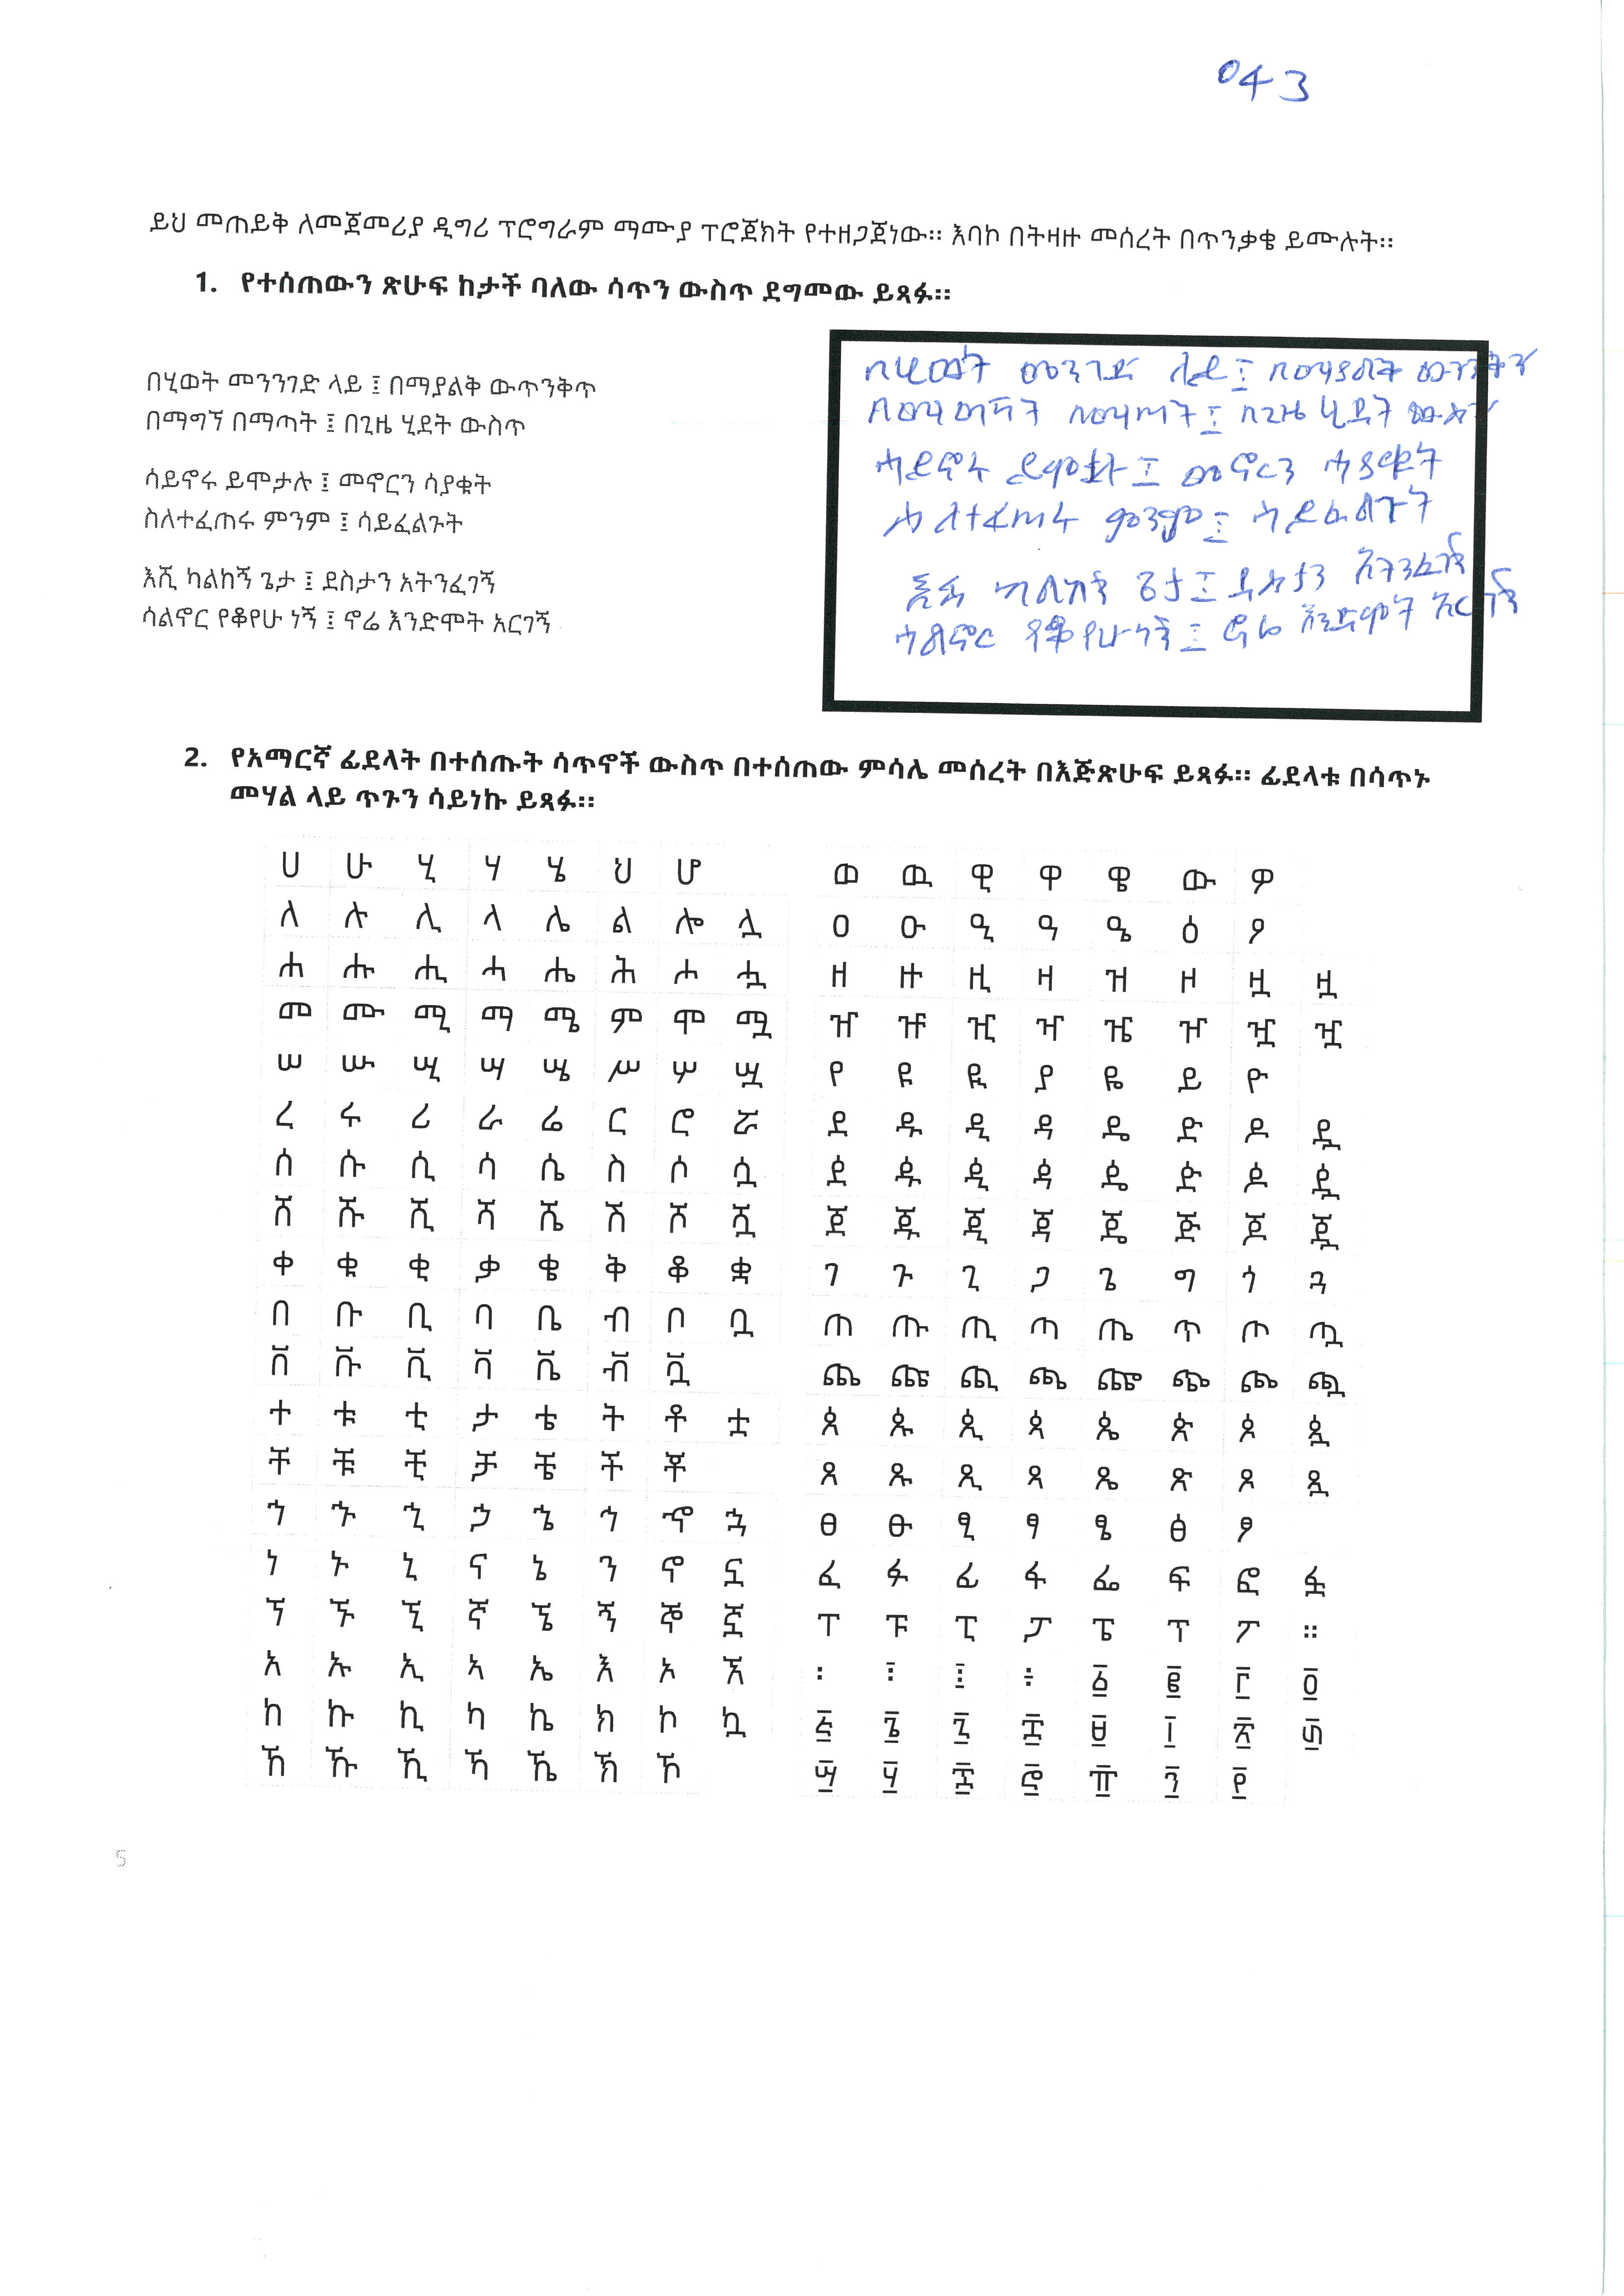 043
ይህ መጠይቅ ለመጀመሪያ ዲግሪ ፕሮግራም ማሙያ ፕሮጀክት የተዘጋጀነው። እባኮ በትዛዙ መሰረት በጥንቃቄ ይሙሉት።
1. የተሰጠውን ጽሁፍ ከታች ባለው ሳጥን ውስጥ ደግመው ይጻፉ።
በሂወት መንንገድ ላይ ፤ በማያልቅ ውጥንቅጥ
በማግኘ በማጣት ፤ በጊዜ ሂደት ውስጥ
ሳይኖሩ ይሞታሉ ፤ መኖርን ሳያቁት
ስለተፈጠሩ ምንም ፤ ሳይፈልጉት
እሺ ካልከኝ ጌታ ፤ ደስታን አትንፈገኝ
ሳልኖር የቆየሁ ነኝ ፤ ኖሬ እንድሞት አርገኝ
በሂወት መንገድ ላይ ፤
በማጣት ፤ በጊዜ ሂደት ውስጥ
ሳይኖሩ ይሞታሉ ፤ መኖርን ሳያቁት
ስለተፈጠሩ ምንም ፤ ሳይፈልጉት
እሺ ካልከኝ ጌታ ፤ ደስታን አትንፈገኝ
ሳልኖር የቆየሁ ነኝ ፤ ኖሬ እንድሞት አርገኝ
2. የአማርኛ ፊደላት በተሰጡት ሳጥኖች ውስጥ በተሰጠው ምሳሌ መሰረት በእጅጽሁፍ ይጻፉ። ፊደላቱ በሳጥኑ
መሃል ላይ ጥጉን ሳይነኩ ይጻፉ።
ሀ ሁ ሂ ሃ ሄ ህ ሆ
ለ ሉ ሊ ላ ሌ ል ሎ ሏ
ሐ ሑ ሒ ሓ ሔ ሕ ሖ ሗ
መ ሙ ሚ ማ ሜ ም ሞ ሟ
ሠ ሡ ሢ ሣ ሤ ሥ ሦ ሧ
ረ ሩ ሪ ራ ሬ ር ሮ ሯ
ሰ ሱ ሲ ሳ ሴ ስ ሶ ሷ
ሸ ሹ ሺ ሻ ሼ ሽ ሾ ሿ
ቀ ቁ ቂ ቃ ቄ ቅ ቆ ቋ
በ ቡ ቢ ባ ቤ ብ ቦ ቧ
ቨ ቩ ቪ ቫ ቬ ቭ ቯ
ተ ቱ ቲ ታ ቴ ት ቶ ቷ
ቸ ቹ ቺ ቻ ቼ ች ቾ
ኀ ኁ ኂ ኃ ኄ ኅ ኆ ኋ
ነ ኑ ኒ ና ኔ ን ኖ ኗ
ኘ ኙ ኚ ኛ ኜ ኝ ኞ ኟ
አ ኡ ኢ ኣ ኤ እ ኦ ኧ
ከ ኩ ኪ ካ ኬ ክ ኮ ኳ
ኸ ኹ ኺ ኻ ኼ ኽ ኾ
ወ ዉ ዊ ዋ ዌ ው ዎ
ዐ ዑ ዒ ዓ ዔ ዕ ዖ
ዘ ዙ ዚ ዛ ዝ ዞ ዟ ዟ
ዠ ዡ ዢ ዣ ዤ ዦ ዧ ዧ
የ ዩ ዪ ያ ዬ ይ ዮ
ደ ዱ ዲ ዳ ዴ ድ ዶ ዷ
ዸ ዹ ዺ ዻ ዼ ዽ ዾ ዿ
ጀ ጁ ጂ ጃ ጄ ጅ ጆ ጇ
ገ ጉ ጊ ጋ ጌ ግ ጎ ጓ
ጠ ጡ ጢ ጣ ጤ ጥ ጦ ጧ
ጨ ጩ ጪ ጫ ጬ ጭ ጮ ጯ
ጰ ጱ ጲ ጳ ጴ ጵ ጶ ጷ
ጸ ጹ ጺ ጻ ጼ ጽ ጾ ጿ
ፀ ፁ ፂ ፃ ፄ ፅ ፆ
ፈ ፉ ፊ ፋ ፌ ፍ ፎ ፏ
ፐ ፑ ፒ ፓ ፔ ፕ ፖ ።
፡ ፣ ፤ ÷ ፩ ፪ ፫ ፬
፭ ፮ ፯ ፰ ፱ ፲ ፳ ፴
፵ ፶ ፷ ፸ ፹ ፺ ፻
5